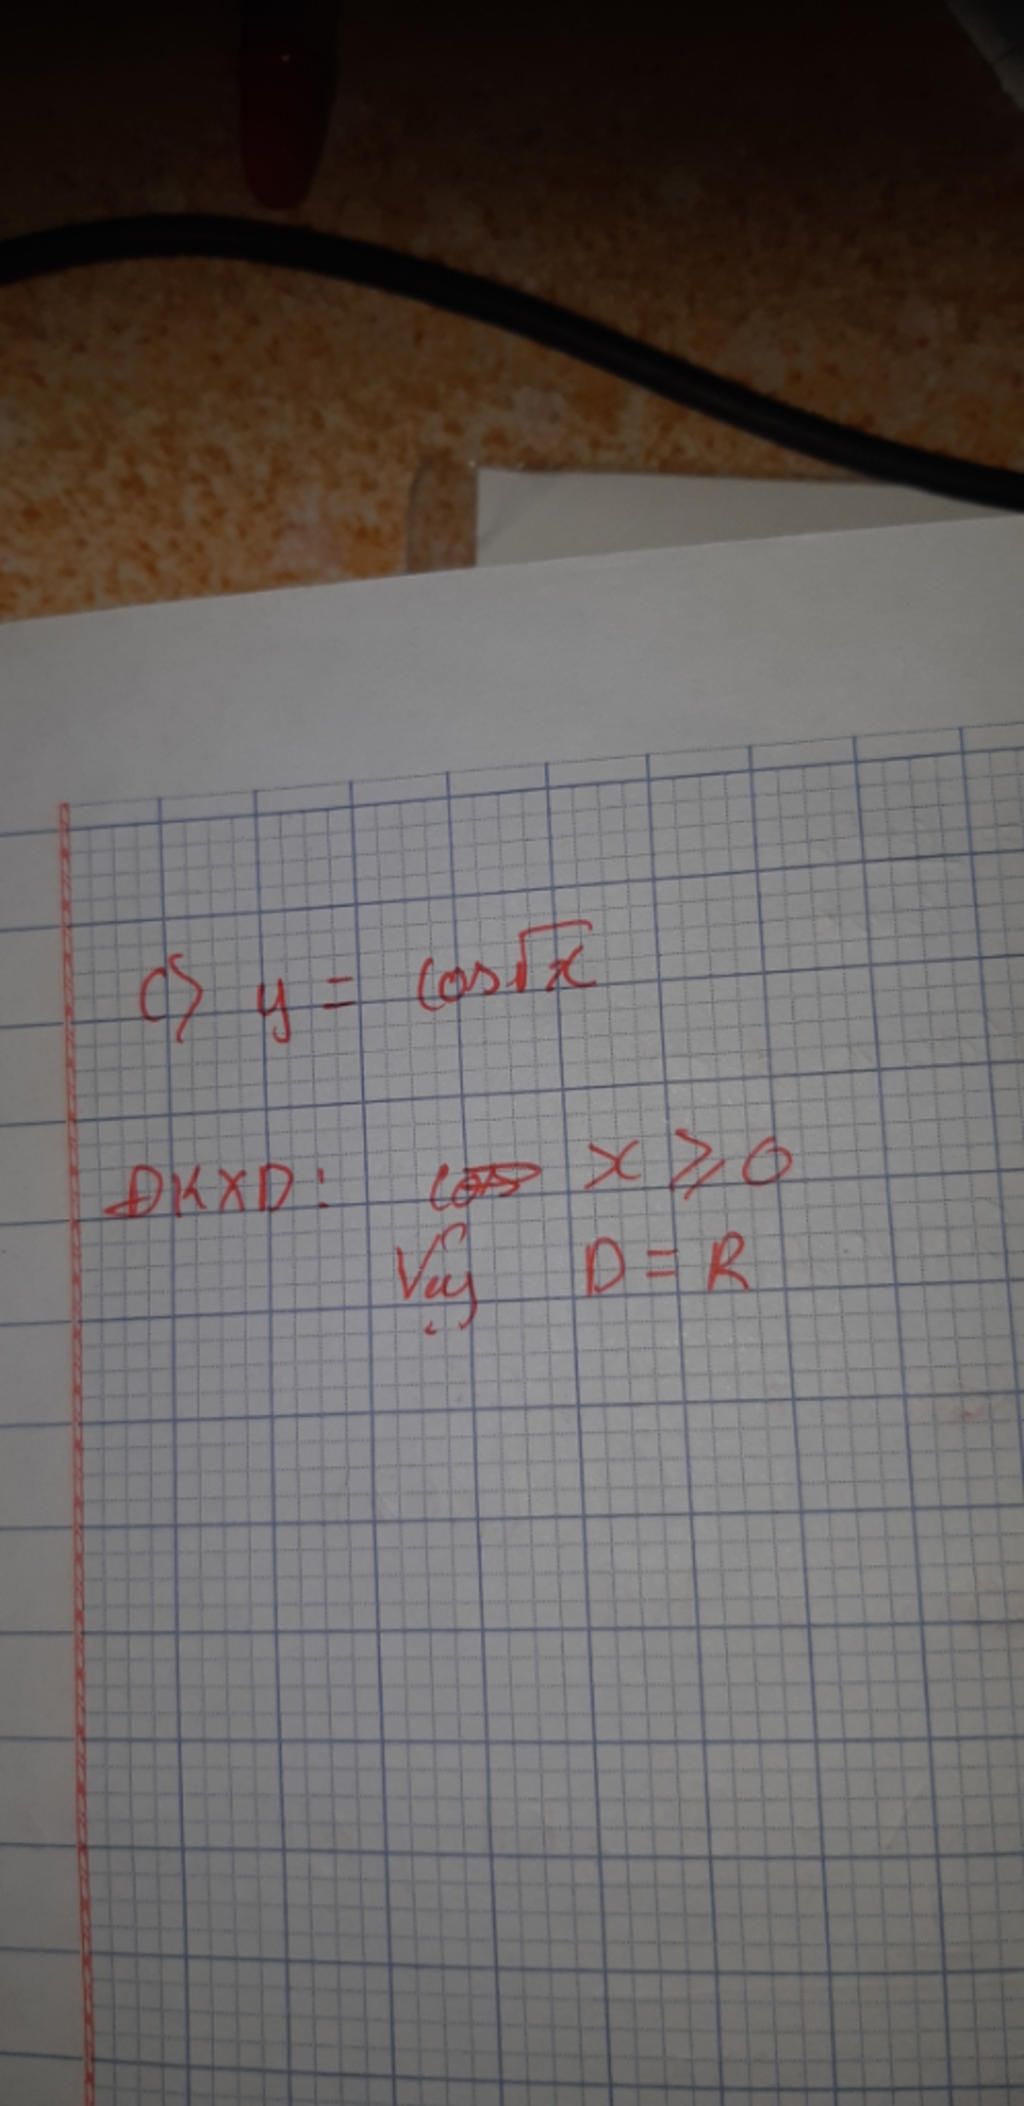 c) y = cos√x
ĐKXĐ: cos x ≥ 0
Vậy D = R